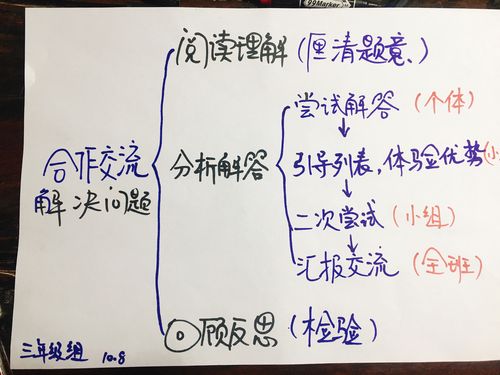 99Marker
阅读理解(厘清题意、)
尝试解答(个体)
合作交流
解决问题
分析解答
引导列表,体验优势(小
二次尝试(小组)
汇报交流(全班)
回顾反思(检验)
三年级组 10.8